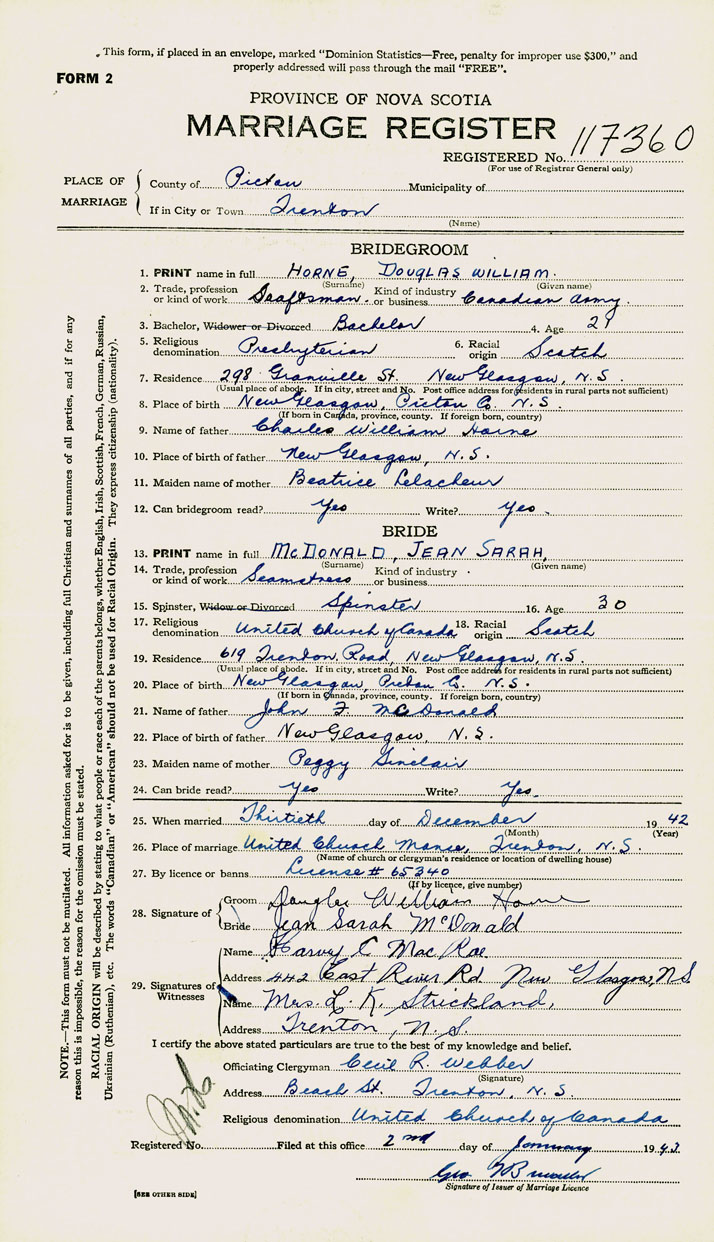 This form, if placed in an envelope, marked "Dominion Statistics—Free, penalty for improper use $300," and
properly addressed will pass through the mail "FREE".
FORM 2
PROVINCE OF NOVA SCOTIA
MARRIAGE REGISTER
REGISTERED No. 117360
(For use of Registrar General only)
PLACE OF MARRIAGE
County of Pictou Municipality of
If in City or Town Trenton
(Name)
BRIDEGROOM
1. PRINT name in full HORNE, DOUGLAS WILLIAM.
(Surname) (Given name)
2. Trade, profession or kind of work Craftsman. Kind of industry or business Canadian Army.
3. Bachelor, Widower or Divorced Bachelor 4. Age 29
5. Religious denomination Presbyterian 6. Racial origin Scotch
7. Residence 298 Granville St. New Glasgow, N.S.
(Usual place of abode. If in city, street and No. Post office address for residents in rural parts not sufficient)
8. Place of birth New Glasgow, Pictou Co. N.S.
(If born in Canada, province, county. If foreign born, country)
9. Name of father Charles William Horne
10. Place of birth of father New Glasgow, N.S.
11. Maiden name of mother Beatrice Lelacheur
12. Can bridegroom read? Yes Write? Yes.
BRIDE
13. PRINT name in full McDONALD, JEAN SARAH,
(Surname) (Given name)
14. Trade, profession or kind of work Seamstress Kind of industry or business
15. Spinster, Widow or Divorced Spinster 16. Age 30
17. Religious denomination United Church of Canada 18. Racial origin Scotch
19. Residence 619 Trenton Road, New Glasgow, N.S.
(Usual place of abode. If in city, street and No. Post office address for residents in rural parts not sufficient)
20. Place of birth New Glasgow, Pictou Co. N.S.
(If born in Canada, province, county. If foreign born, country)
21. Name of father John F McDonald
22. Place of birth of father New Glasgow, N.S.
23. Maiden name of mother Peggy Sinclair
24. Can bride read? Yes Write? Yes.
25. When married Thirtieth day of December 19 42
(Month) (Year)
26. Place of marriage United Church Manse, Trenton, N.S.
(Name of church or clergyman's residence or location of dwelling house)
27. By licence or banns License # 65340
(If by licence, give number)
28. Signature of
Groom Douglas William Horne
Bride Jean Sarah McDonald
29. Signatures of Witnesses
Name Harvey C MacRae
Address 442 East River Rd. New Glasgow, N.S.
Name Mrs. L. K. Strickland,
Address Trenton, N.S.
I certify the above stated particulars are true to the best of my knowledge and belief.
Officiating Clergyman Cecil R. Webber
(Signature)
Address Beach St. Trenton, N.S.
Religious denomination United Church of Canada
Registered No. Filed at this office 2nd day of January 19 43
Geo
Signature of Issuer of Marriage Licence
[SEE OTHER SIDE]
NOTE.—This form must not be mutilated. All information asked for is to be given, including full Christian and surnames of all parties, and if for any
reason this is impossible, the reason for the omission must be stated.
RACIAL ORIGIN will be described by stating to what people or race each of the parents belongs, whether English, Irish, Scottish, French, German, Russian,
Ukrainian (Ruthenian), etc. The words "Canadian" or "American" should not be used for Racial Origin. They express citizenship (nationality).